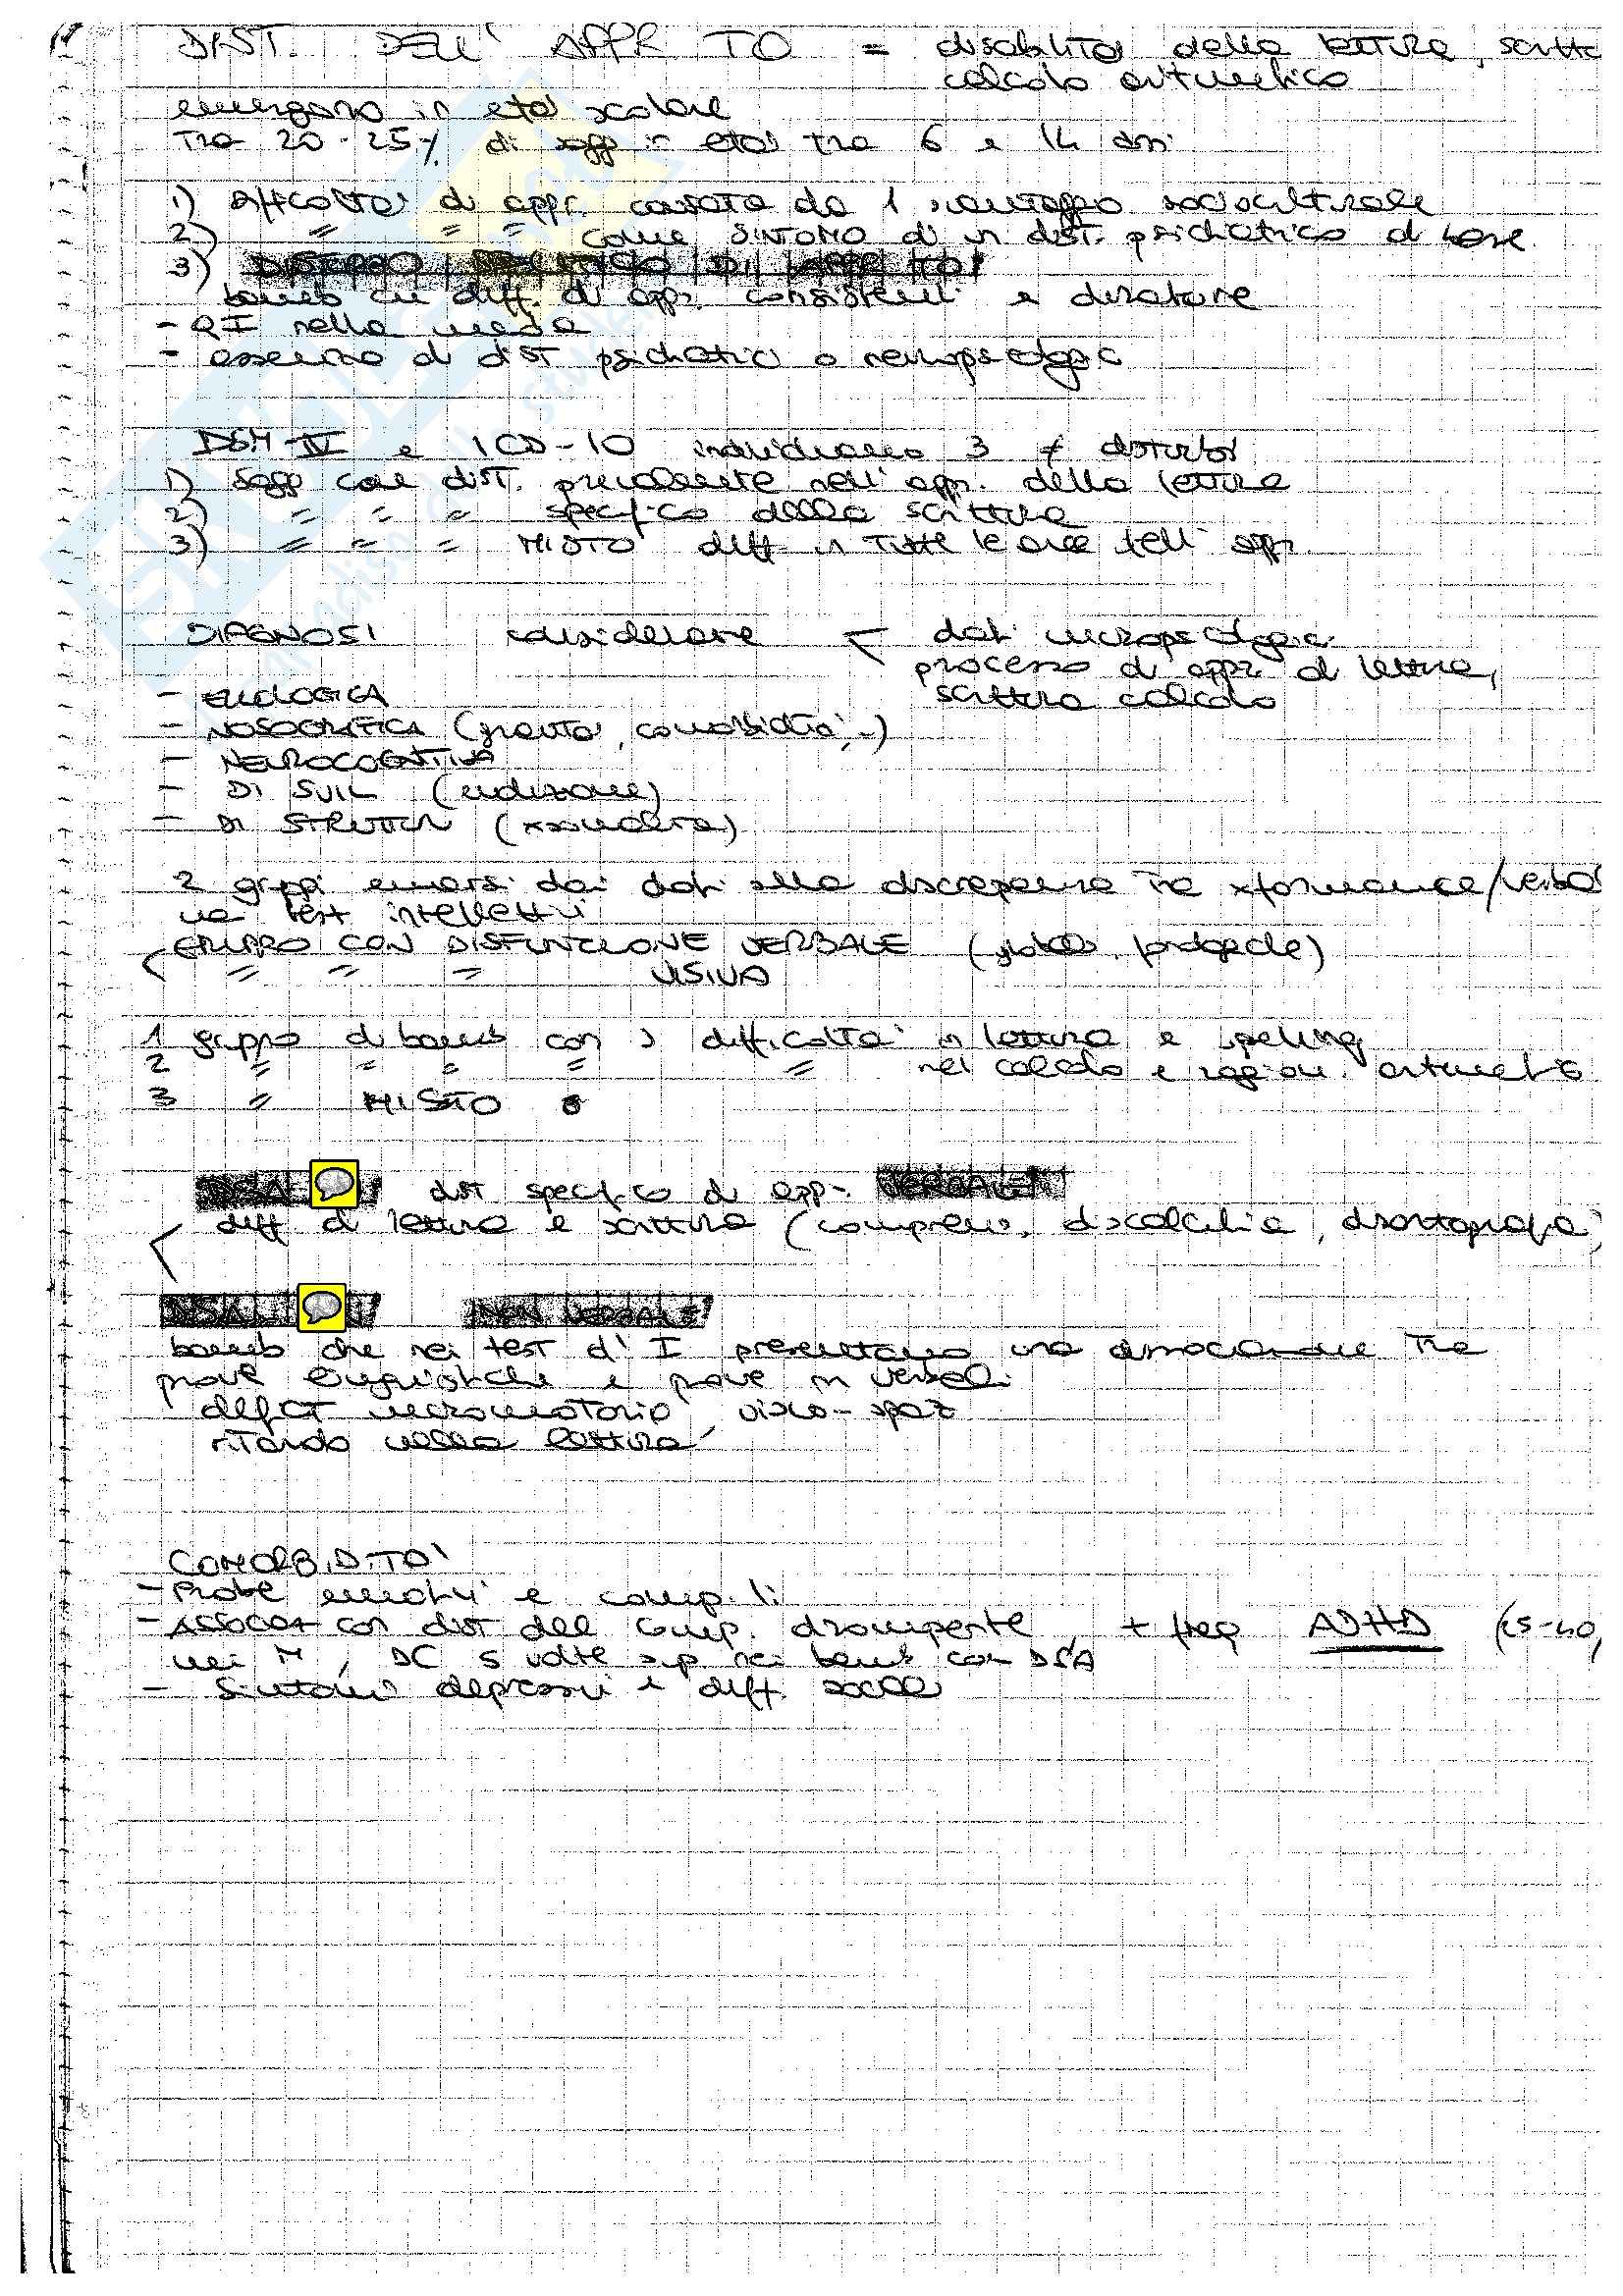 DIST. DELL' APPR TO = disabilità della lettura, scritt
calcolo aritmetico
emergono in età scolare
Tra 20-25% di sogg in età tra 6 e 14 anni
1) difficoltà di appr. causata da 1 svantaggio socioculturale
2) " " " come SINTOMO di un dist. psichiatrico di base
3) DISTURBO SPECIFICO DI APPR TO
bamb cn diff. di appr. consistenti e durature
- QI nella media
- assenza di dist psichiatrici o neuropsicologici
DSM-IV e ICD-10 individuano 3 ≠ disturbi
1) Sogg con dist. prevalente nell'appr. della lettura
2) " " " specifico della scrittura
3) " " " MISTO diff in tutte le aree dell'appr.
DIAGNOSI considerare < dati neuropsicologici
processo di appr. di lettura,
scrittura calcolo
- EZIOLOGICA
- NOSOGRAFICA (gravità, comorbidità, -)
- NEUROCOGNITIVA
- DI SVIL (evoluzione)
- DI STRUTTUR
2 gruppi emersi dai dati sulla discrepanza tra xformance/verbal
nei test intellettivi
GRUPPO CON DISFUNZIONE VERBALE
" " " VISIVA
1 gruppo di bamb con > difficoltà in lettura e spelling
2 " " " " " nel calcolo e ragion. aritmetico
3 " MISTO
DSA dist specifico di app. VERBALE
diff di lettura e scrittura (comprens, discalculia, disortografia)
DSA NON VERBALE
bamb che nei test d'I presentano una dissociazione tra
prove linguistiche e prove n verbali
deficit neuromotorio, visuo-spaz
ritardo nella lettura
COMORBIDITÀ
- Probl emotivi e comp.li
- ASSOCIAZ con dist del comp. dirompente, + freq ADHD (25-40
nei M, DC 5 volte sup nei bamb con DSA
- Sintomi depressivi e diff. sociali